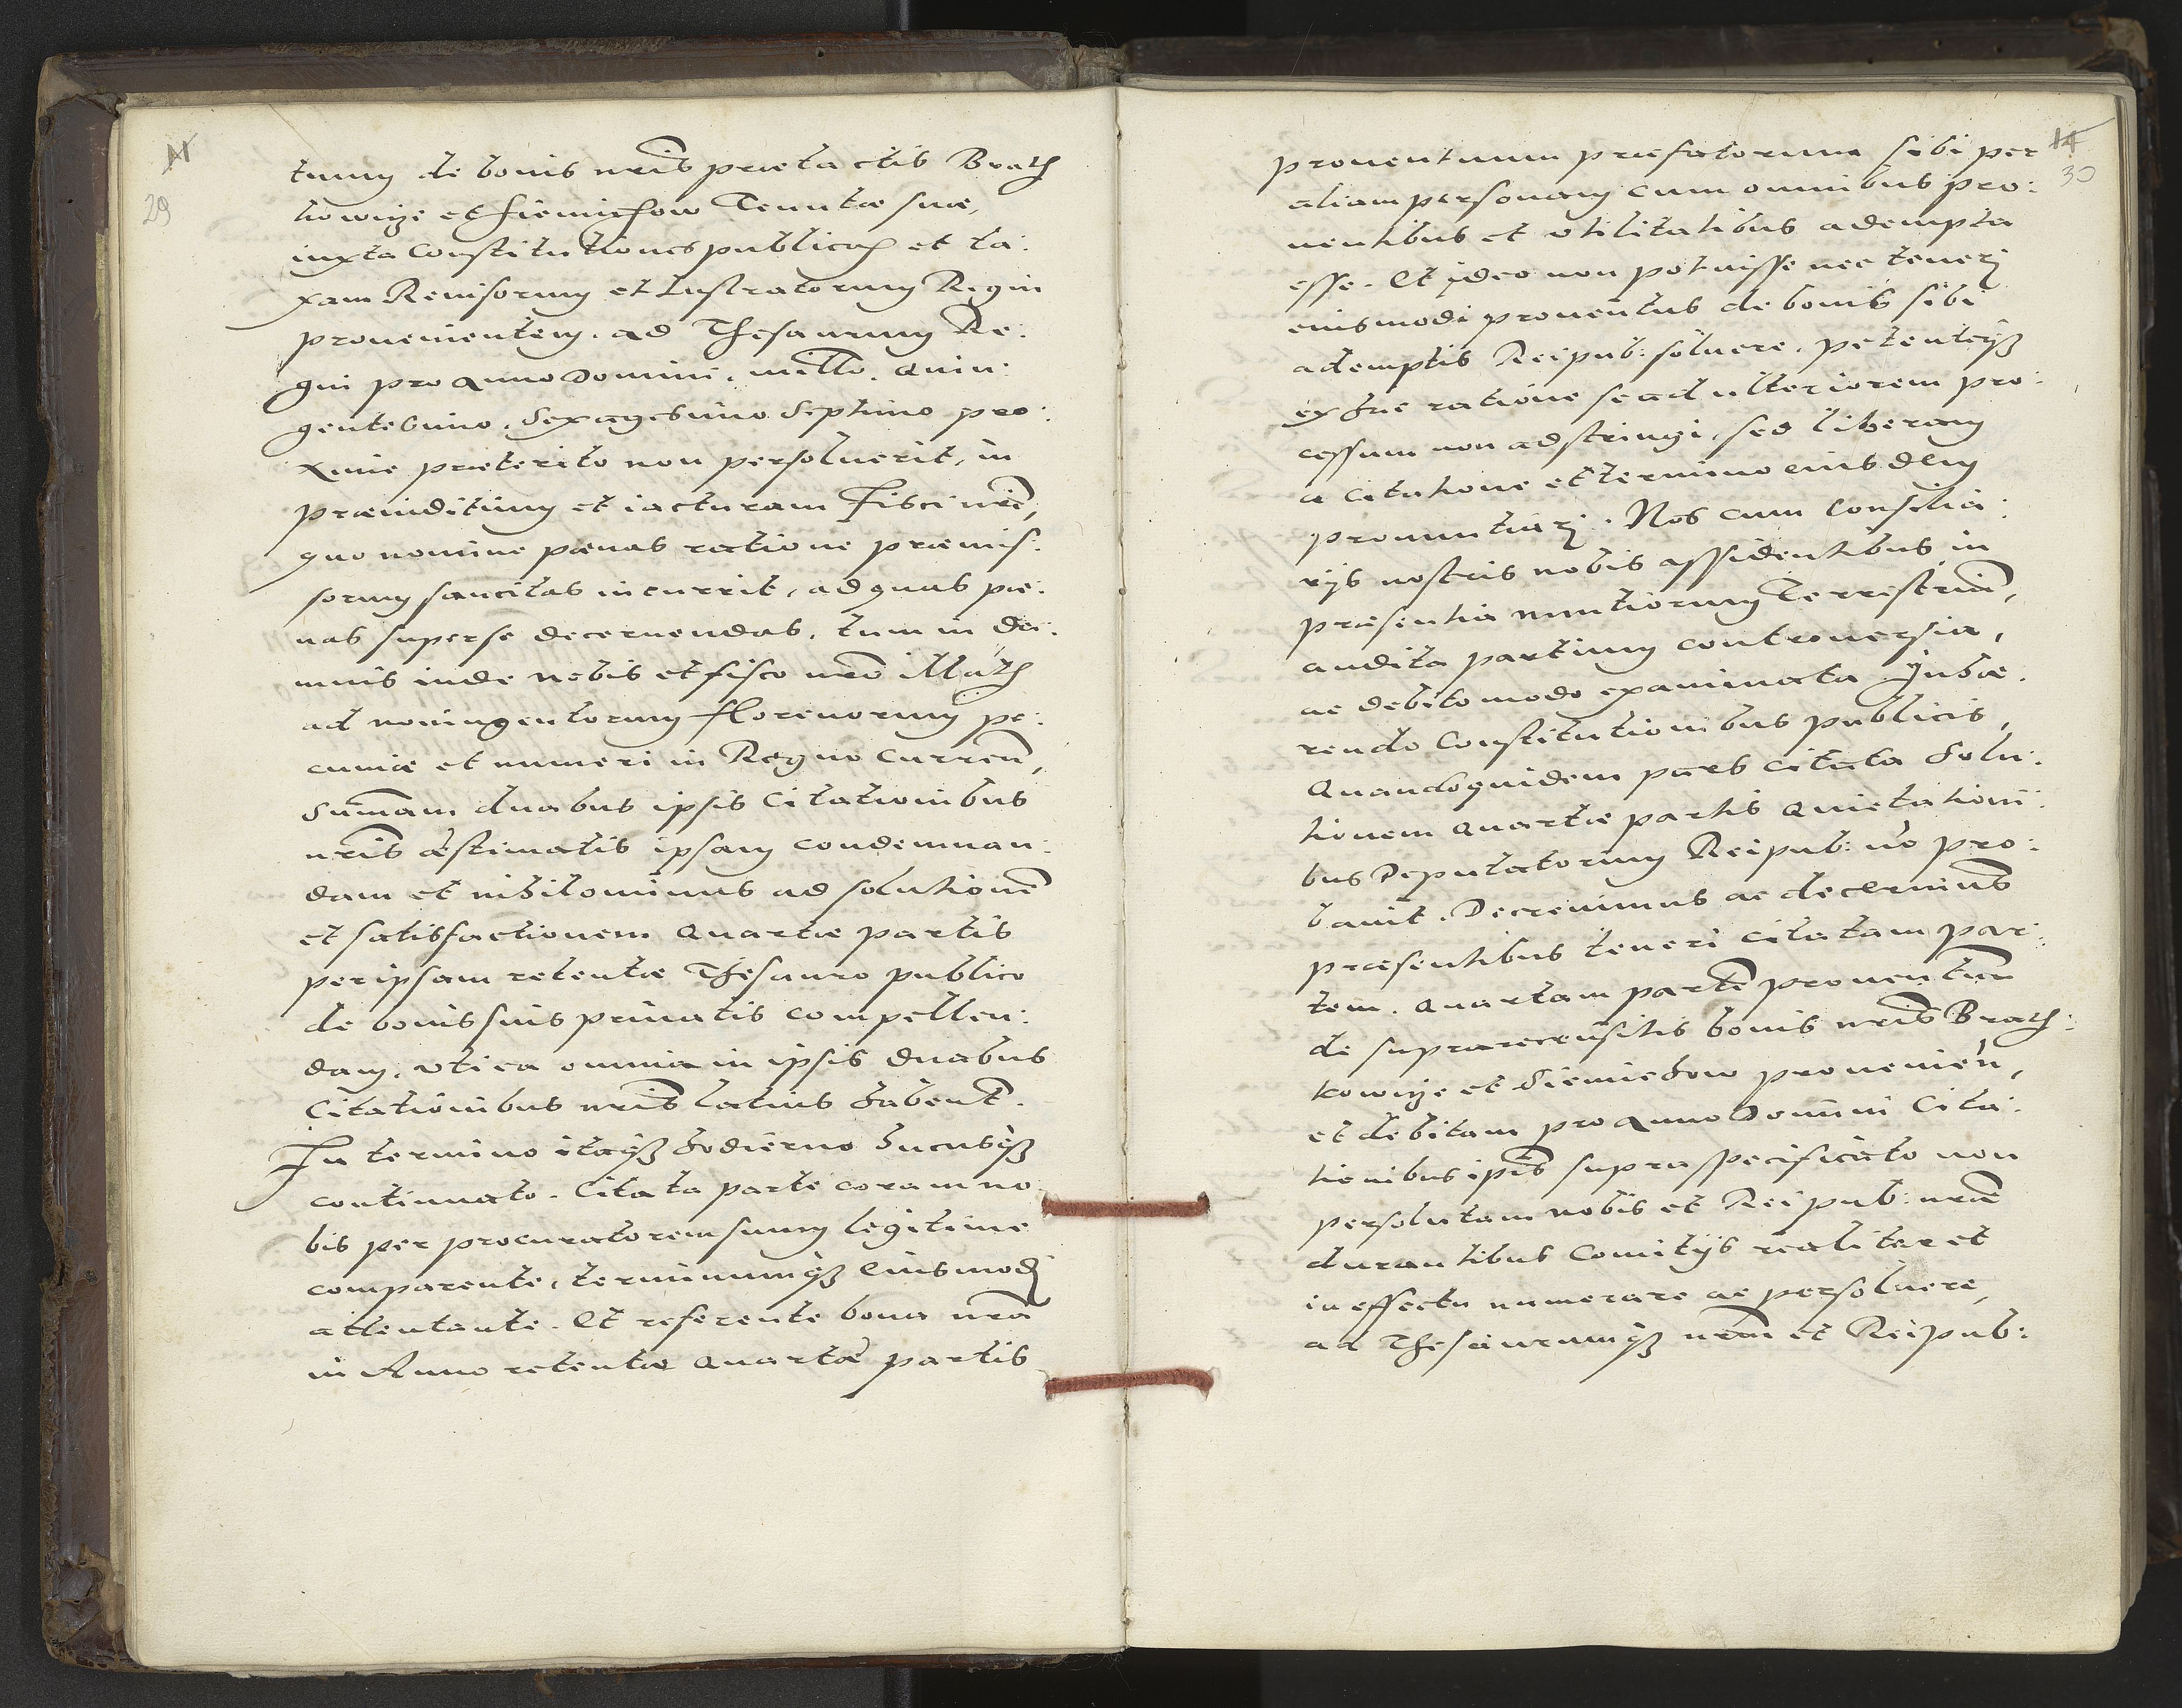 29
tuum de bonis nrīs praetactis Brath
kowicze et Siemichow Tenutae suae,
iuxta Constitutiones publicas et ta:
xam Reuisorum et Lustratorum Regni
prouenientem. ad Thesaurum Re:
gni pro Anno Domini. millo. Quin:
gentesimo. Sexagesimo Septimo pro:
xime praeterito non persoluerit, in
praeiuditium et iacturam Fisci nrī,
quo nomine paenas ratione praemis:
sorum sancitas incurrit, ad quas pae:
nas super se decernendas. tum in da:
mnis inde nobis et fisco nrō illatis
ad noningentorum florenorum pe:
cuniae et numeri in Regno Curren̄,
Summam duabus ipsis Citationibus
nrīs aestimatis ipsam condemnan:
dam et nihilominus ad solutionē
et satisfactionem Quartae partis
per ipsam retentae Thesauro publico
de bonis suis priuatis compellen:
dam, vti ea omnia in ipsis duabus
Citationibus nrīs latius habent.
In termino itaqȝ hodierno hucusqȝ
continuato. Citata parte coram no:
bis per procuratorem suum legitime
comparente, terminumqȝ eiusmodi
attentante. Et referente bona nrā
in Anno retentae Quartae partis
14
30
prouentuum praefatorum sibi per
aliam personam cum omnibus pro:
uentibus et vtilitatibus adempta
esse. Et ideo non potuisse nec teneri
eiusmodi prouentus de bonis sibi
ademptis Reipub: soluere. petenteqȝ
ex hac ratione se ad vlteriorem pro:
cessum non adstringi, sed liberam
a Citatione et termino eiusdem
pronuntiari. Nos cum Consilia:
rijs nostris nobis assidentibus in
praesentia nuntiorum Terrestrium,
audita partium controuersia,
ac debito modo examinata Inhae:
rendo Constitutionibus publicis,
Quandoquidem pars Citata Solu:
tionem Quartae partis Quietationi:
bus Deputatorum Reipub: nō pro:
bauit. Decreuimus ac decernimus
praesentibus teneri Citatam par:
tem. Quartam partē prouentuū
de suprarecensitis bonis nrīs Brath:
kowicze et Siemiehow prouenien̄,
et debitam pro Anno Domini Cita:
tionibus ipīs supra specificato non
persolutam nobis et Reipub: nrāe
durantibus Comitijs realiter et
in effectu numerare ac persoluere,
ad Thesaurumqȝ nrm̄ et Reipub: